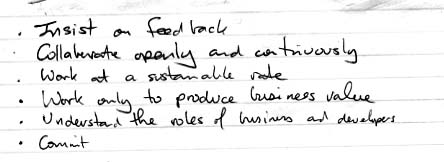 . Insist on feedback
. Collaborate openly and continuously
. Work at a sustainable rate
• Work only to produce business value
• Understand the roles of business and developers
• Commit